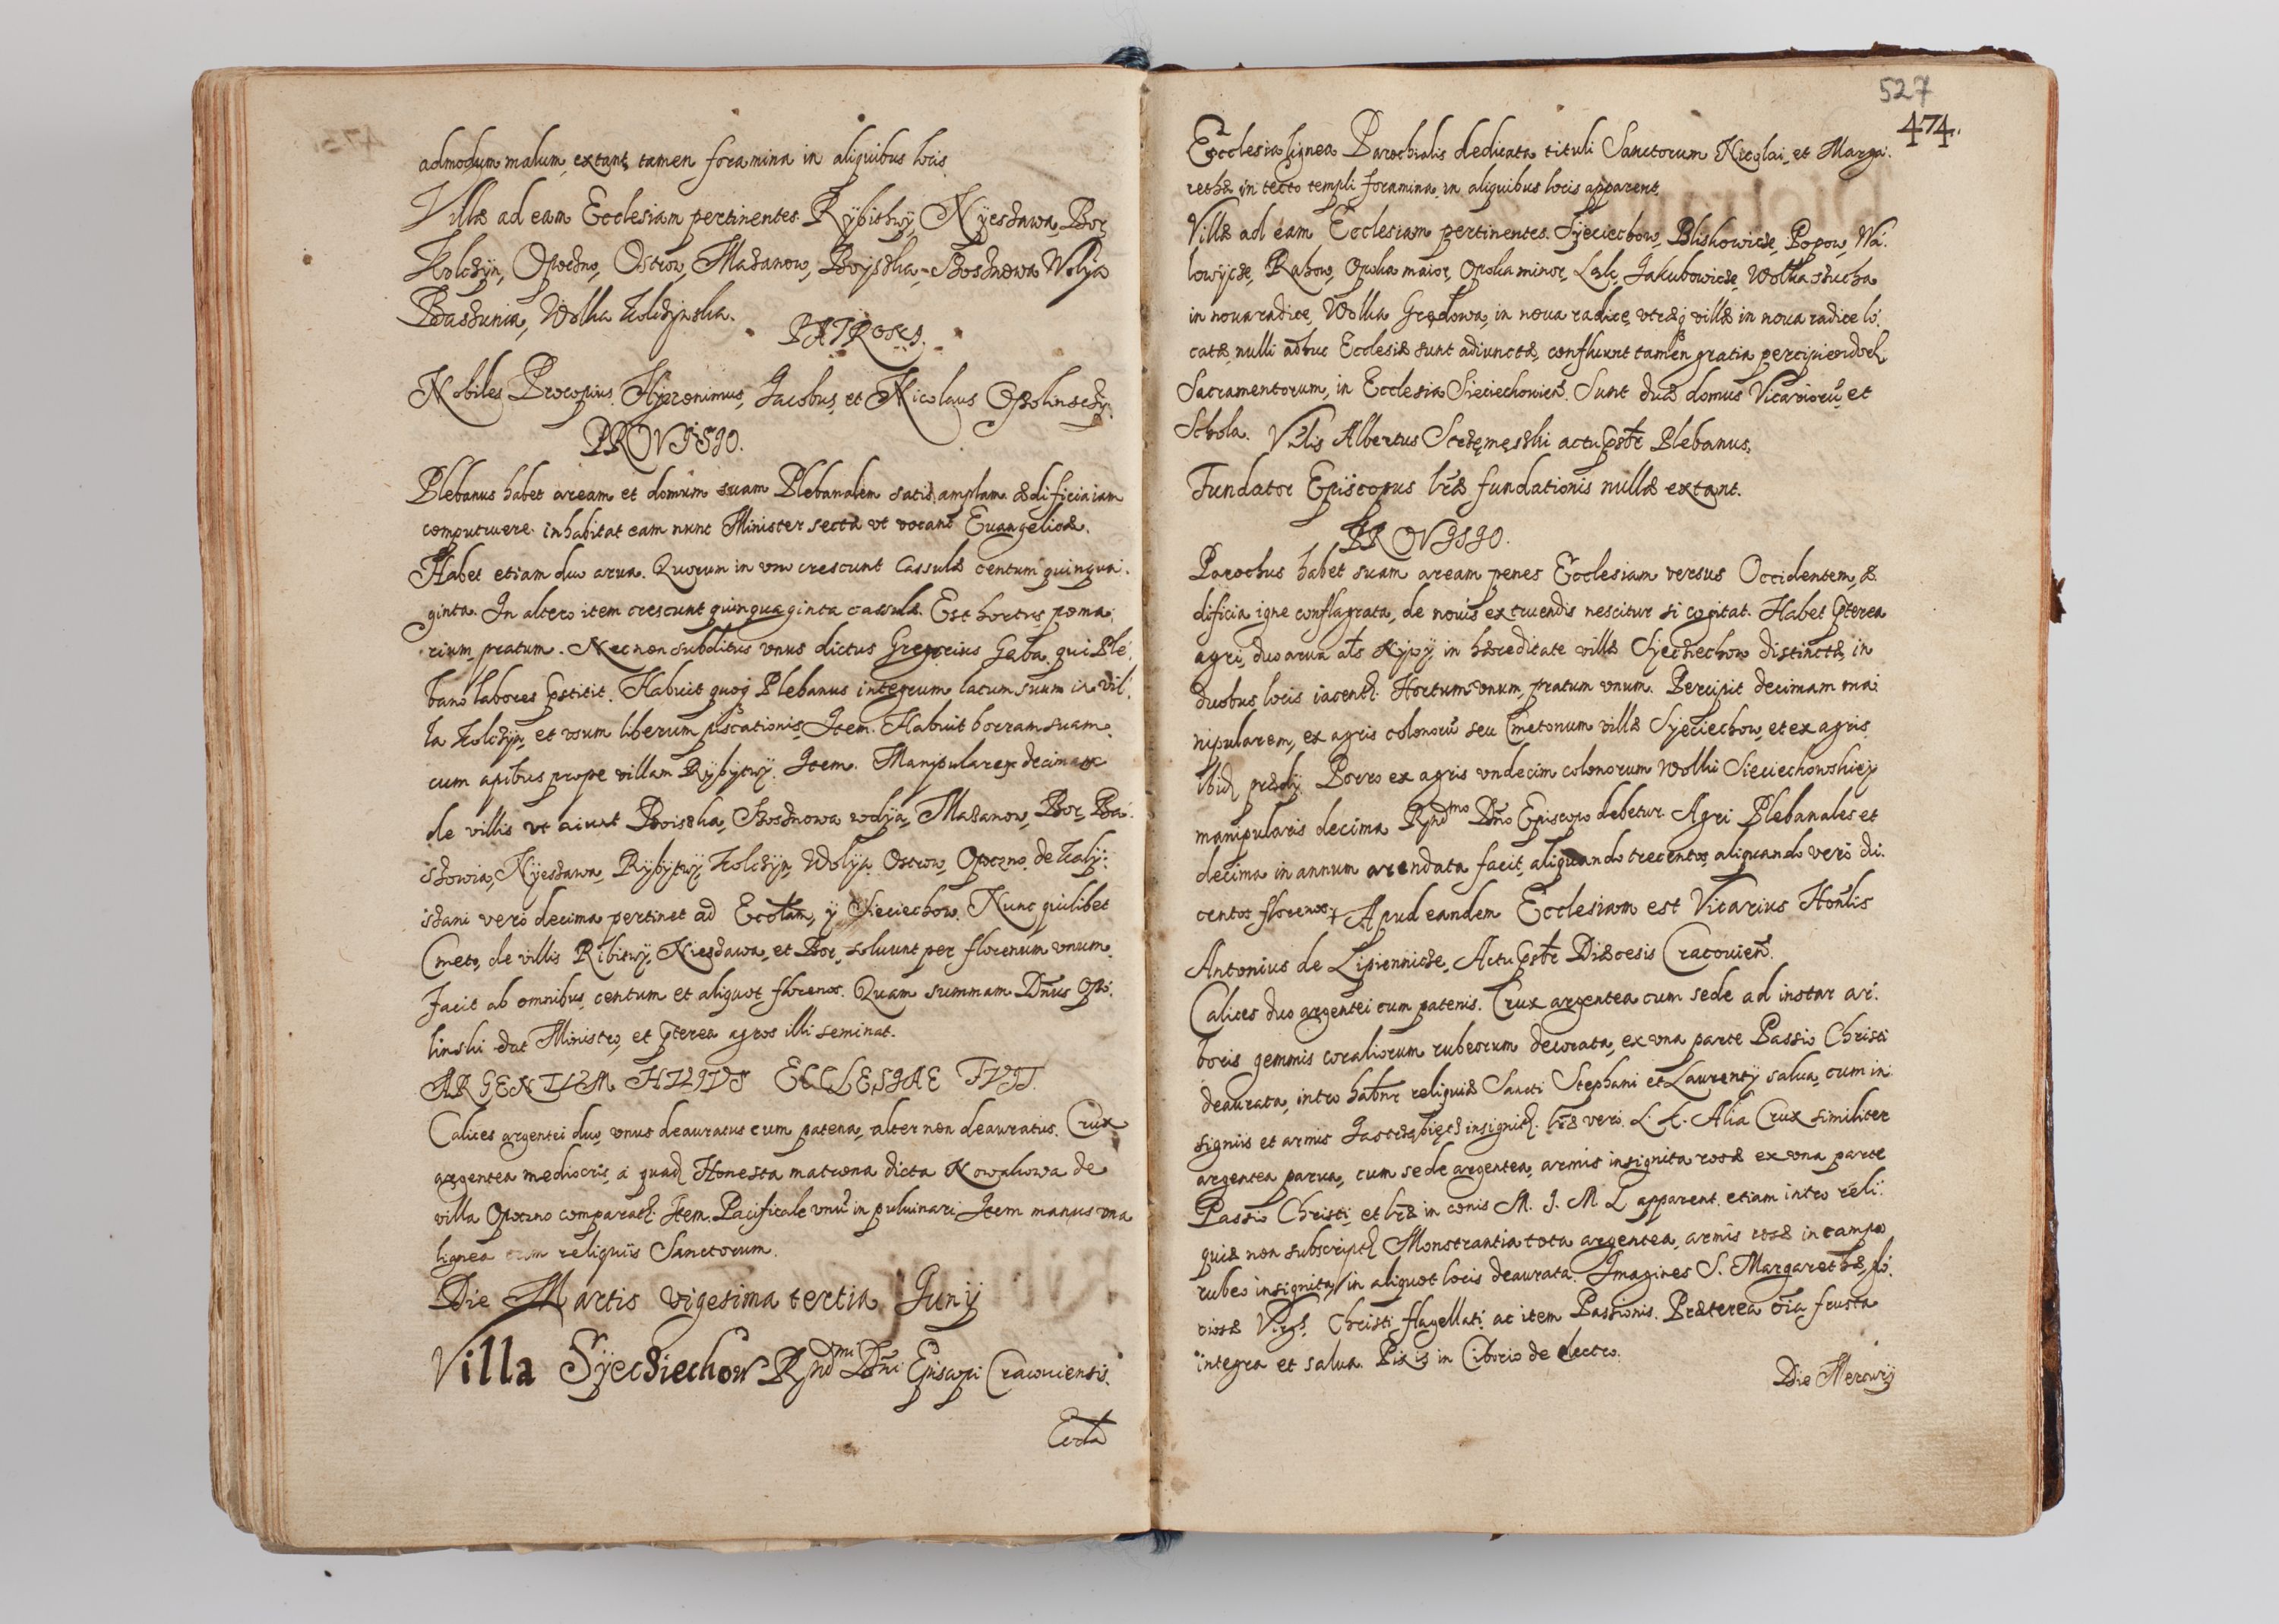 admodum malum, extant tamen foramina in aliquibus locis.
Villæ ad eam Ecclesiam pertinentes Rÿbithwÿ, Nÿeszawa, Bor,
Kolczÿn, Opoczno, Ostrow, Mazanow, Boÿska, Wolÿa
Wolka Kolczÿnska.
PATRONES.
Nobiles Procopius, Hÿeronimus, Jacobus, et Nicolaus
PROVISIO.
Plebanus habet aream et domum suam Plebanalem satis amplam ædificia iam
computruere. inhabitat eam nunc Minister secta vt vocant Euangelicæ.
Habet etiam duo arua. Quorum in vno crescunt Cassulæ centum quinqua:
ginta. In altero item crescunt quinquaginta cassulæ. Est hortus poma:
rium, pratum. Necnon subditus vnus dictus Gregorius Gaba. qui Ple:
bano labores pstitit. Habuit quoq Plebanus integrum lacum suum in vil:
la Kolczÿn, et vsum liberum piscationis, Item. Habuit borram suam
cum apibus prope villam Rÿbÿtwÿ. Item. Manipularem decimam
de villis vt aiunt Boiska, wolÿa, Mazanow, Bor, Ba:
Nÿeszawa, Rÿbÿtwÿ, Kolczÿn, Wolÿa, Ostrow, Opoczno. de Kalÿ:
szani vero decima pertinet ad Ecclam, ÿ Sieciechow. Nunc quilibet
Cmeto, de villis Ribitwÿ, Nieszawa, et Bor, soluunt per florenum vnum.
Facit ab omnibus, centum et aliquot florenos. Quam summam Dnus Opo:
linski dat Ministro, et pterea agros illi seminat.
ARGENTVM HVIVS ECCLESIAE FVIT.
Calices argentei duo, vnus deauratus cum patena, alter non deauratus. Crux
argentea mediocris, a quad Honesta matrona dicta Nowakowa de
villa Opoczno comparat. Item. Pacificale vnu in puluinari, Item manus vna
lignea cum reliquiis Sanctorum.
Die Martis vigesima tertia Junÿ
Villa Sÿecziechow Rndmi Dni Episcopi Cracouiensis.
Eccla
527
474.
Ecclesia lignea Parochialis dedicata tituli Sanctorum Nicolai, et Marga:
rethæ in tecto templi foramina in aliquibus locis apparent.
Villæ ad eam Ecclesiam pertinentes. Sÿeciechow, Bliskowicze, Popow, Wa:
lowÿcze, Rahow, Opoka maior, Opoka minor, Jakubowicze, Wolka
in noua radice, Wolka in noua radice, vtræq villæ in noua radice lo:
catæ, nulli adhuc Ecclesiæ sunt adiunctæ, confluunt tamen gratia percipiendor
Sacramentorum, in Ecclesia Sieciechouien. Sunt duæ domus Vicarioru, et
Schola. Vnlis Albertus actu psbr Plebanus,
Fundator Episcopus lræ fundationis nullæ extant.
PROVISIO.
Parochus habet suam aream penes Ecclesiam versus Occidentem, æ:
dificia igne conflagrata, de nouis extruendis nescitur si cogitat. Habet pterea
agri, duo arua als nÿwÿ, in hæreditate villæ Sÿecziechow distinctæ, in
duobus locis iacent. Hortum vnum, pratum vnum. Percipit decimam ma:
nipularem, ex agris colonoru seu Cmetonum villæ Sÿeciechow, et ex agris
ibid prædÿ. Porro ex agris vndecim colonorum Wolki Sieciechowskieÿ
manipularis decima Rndmo Dno Episcopo debetur. Agri Plebanales et
decima in annum arendata facit, aliquando trecentos, aliquando vero du:
centos florenos. Apud eandem Ecclesiam est Vicarius Honlis
Antonius de Lipiennicze, Actu psbr Diæcesis Cracouien.
Calices duo argentei cum patenis. Crux argentea cum sede ad instar ar:
boris gemmis coraliorum rubeorum decorata, ex vna parte Passio Christi
deaurata, intro habnt reliquiæ Sancti Stephani et Laurentÿ salua, cum in:
signiis et armis insignit. lræ vero. Alia Crux similiter
argentea parua, cum sede argentea, armis insignita rosæ ex vna parte
Passio Christi, et lræ in conis M. J. M L apparent. etiam intro reli:
quiæ non subscript. Monstrantia tota argentea, armis rosæ in campo
rubeo insignita, in aliquot locis deaurata. Imagines S. Margarethæ, glo:
riosæ Virgs, Christi flagellati, ac item Passionis. Præterea oia frusta
integra et salua. Pixis in Ciborio de electro.
Die Mercurÿ